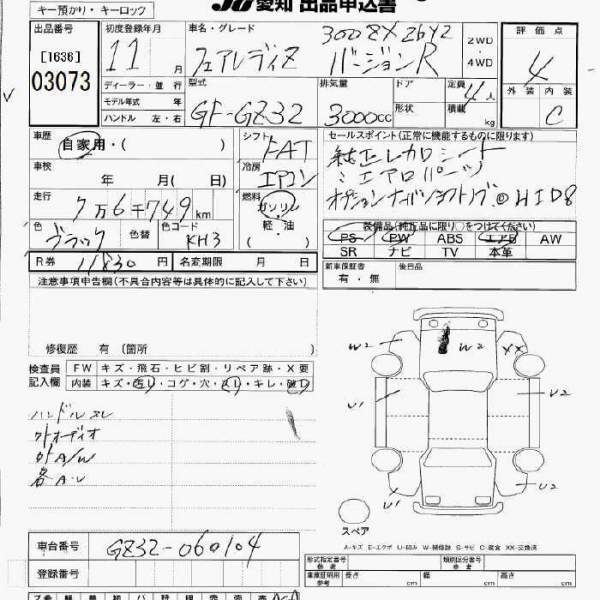 キー預かり・キーロック
JU愛知 出品申込書
出品番号
[1636]
03073
初度登録年月
11 月
ディーラー・並行
モデル年式 年
ハンドル 左・右
車名・グレード
300ZX 2by2
フェアレディZ バージョンR
2WD
4WD
型式
GF-GZ32
排気量
3000cc
ドア
形状
定員 4人
積載 kg
評価点
4
外装 内装
C
車歴
自家用・( )
車検
年 月( 日)
走行
7万6千749km
色
ブラック
色替
色コード
KH3
シフト
FAT
冷房
エアコン
燃料
ガソリン
軽・油
セールスポイント(正常に機能するものに限ります)
純正レカロシート
〃エアロパーツ
HID
装備品(純正品に限り○をつけてください)
PS PW ABS エアB AW
SR ナビ TV 本革
新車保証書
有・無
後日品
R券 11830円
名変期限 月 日
注意事項申告欄(不具合内容等は具体的に記入して下さい)
修復歴 有 (箇所
検査員
記入欄
FW キズ・飛石・ヒビ割・リペア跡・X要
内装 キズ・汚れ・コゲ・穴・スレ・キレ・破れ
ハンドルスレ
外オーディオ
外A/W
各A.U
W2 W2 XX
U1 W2
U1
X U2
スペア
A-キズ E-エクボ U-凹み W-補修跡 S-サビ C-腐食 XX-交換済
車台番号
GZ32-060104
登録番号
形式指定番号
類別区分番号
車庫証明用
参考
長さ cm
幅 cm
高さ cm